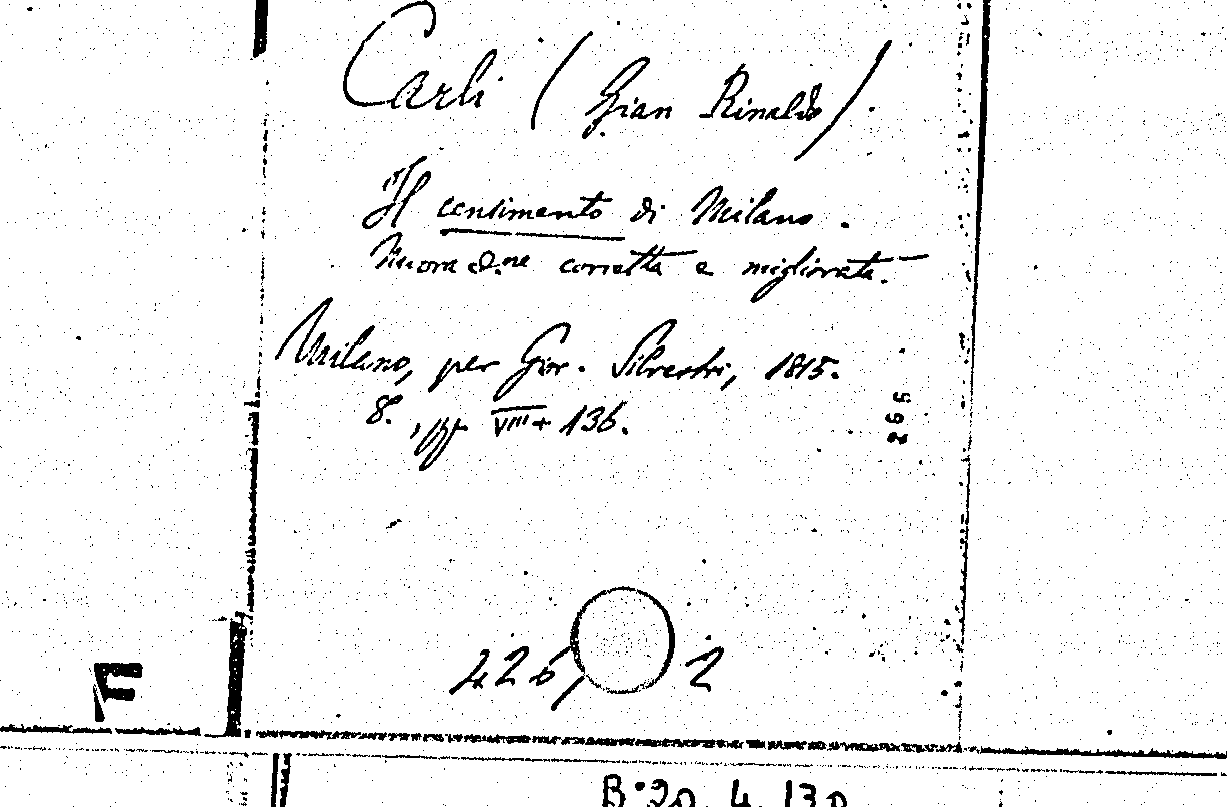 Carli (Gian Rinaldo).
Il censimento di Milano.
Nuova ed.ne corretta e migliorata.
Milano, per Giov. Silvestri, 1815.
8., pp VIII + 136.
266
426, 2
F
B.20.4.130